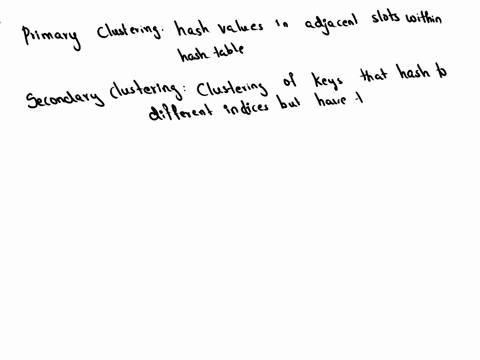 Primary Clustering: hash values in adjacent slots within
hash table
Secondary Clustering: Clustering of keys that hash to
different indices but have t